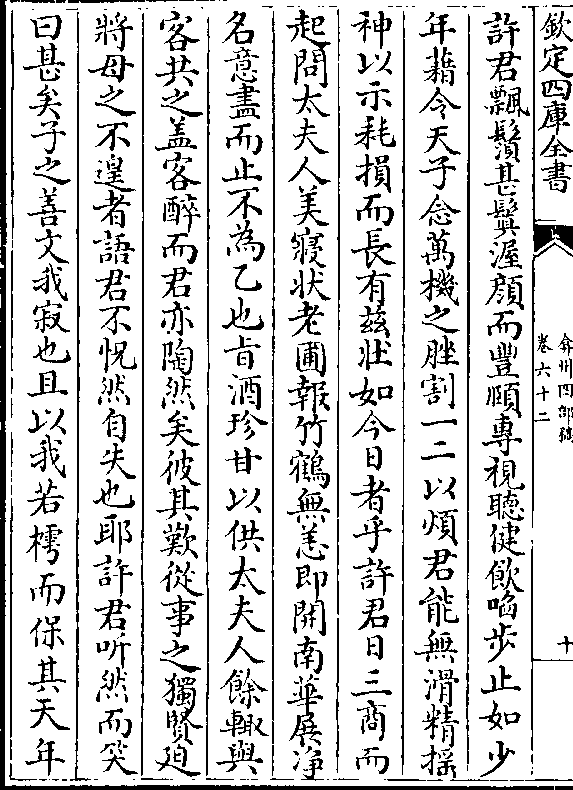 欽定四庫全書
弇州四部稿
卷六十二
十
許君飄鬚甚鬒渥顔而豐頤專視聽健飲啗步止如少
年藉今天子念萬機之脞割一二以煩君能無滑精揺
神以示耗損而長有兹壯如今日者乎許君日三商而
起問太夫人美寢状老圃報竹鶴無恙即開南華展净
名意盡而止不為乙也旨酒珍甘以供太夫人餘輙與
客共之盖客醉而君亦陶然矣彼其歎從事之獨賢廹
將母之不遑者語君不怳然自失也耶許君听然而笑
曰甚矣子之善文我寂也且以我若樗而保其天年